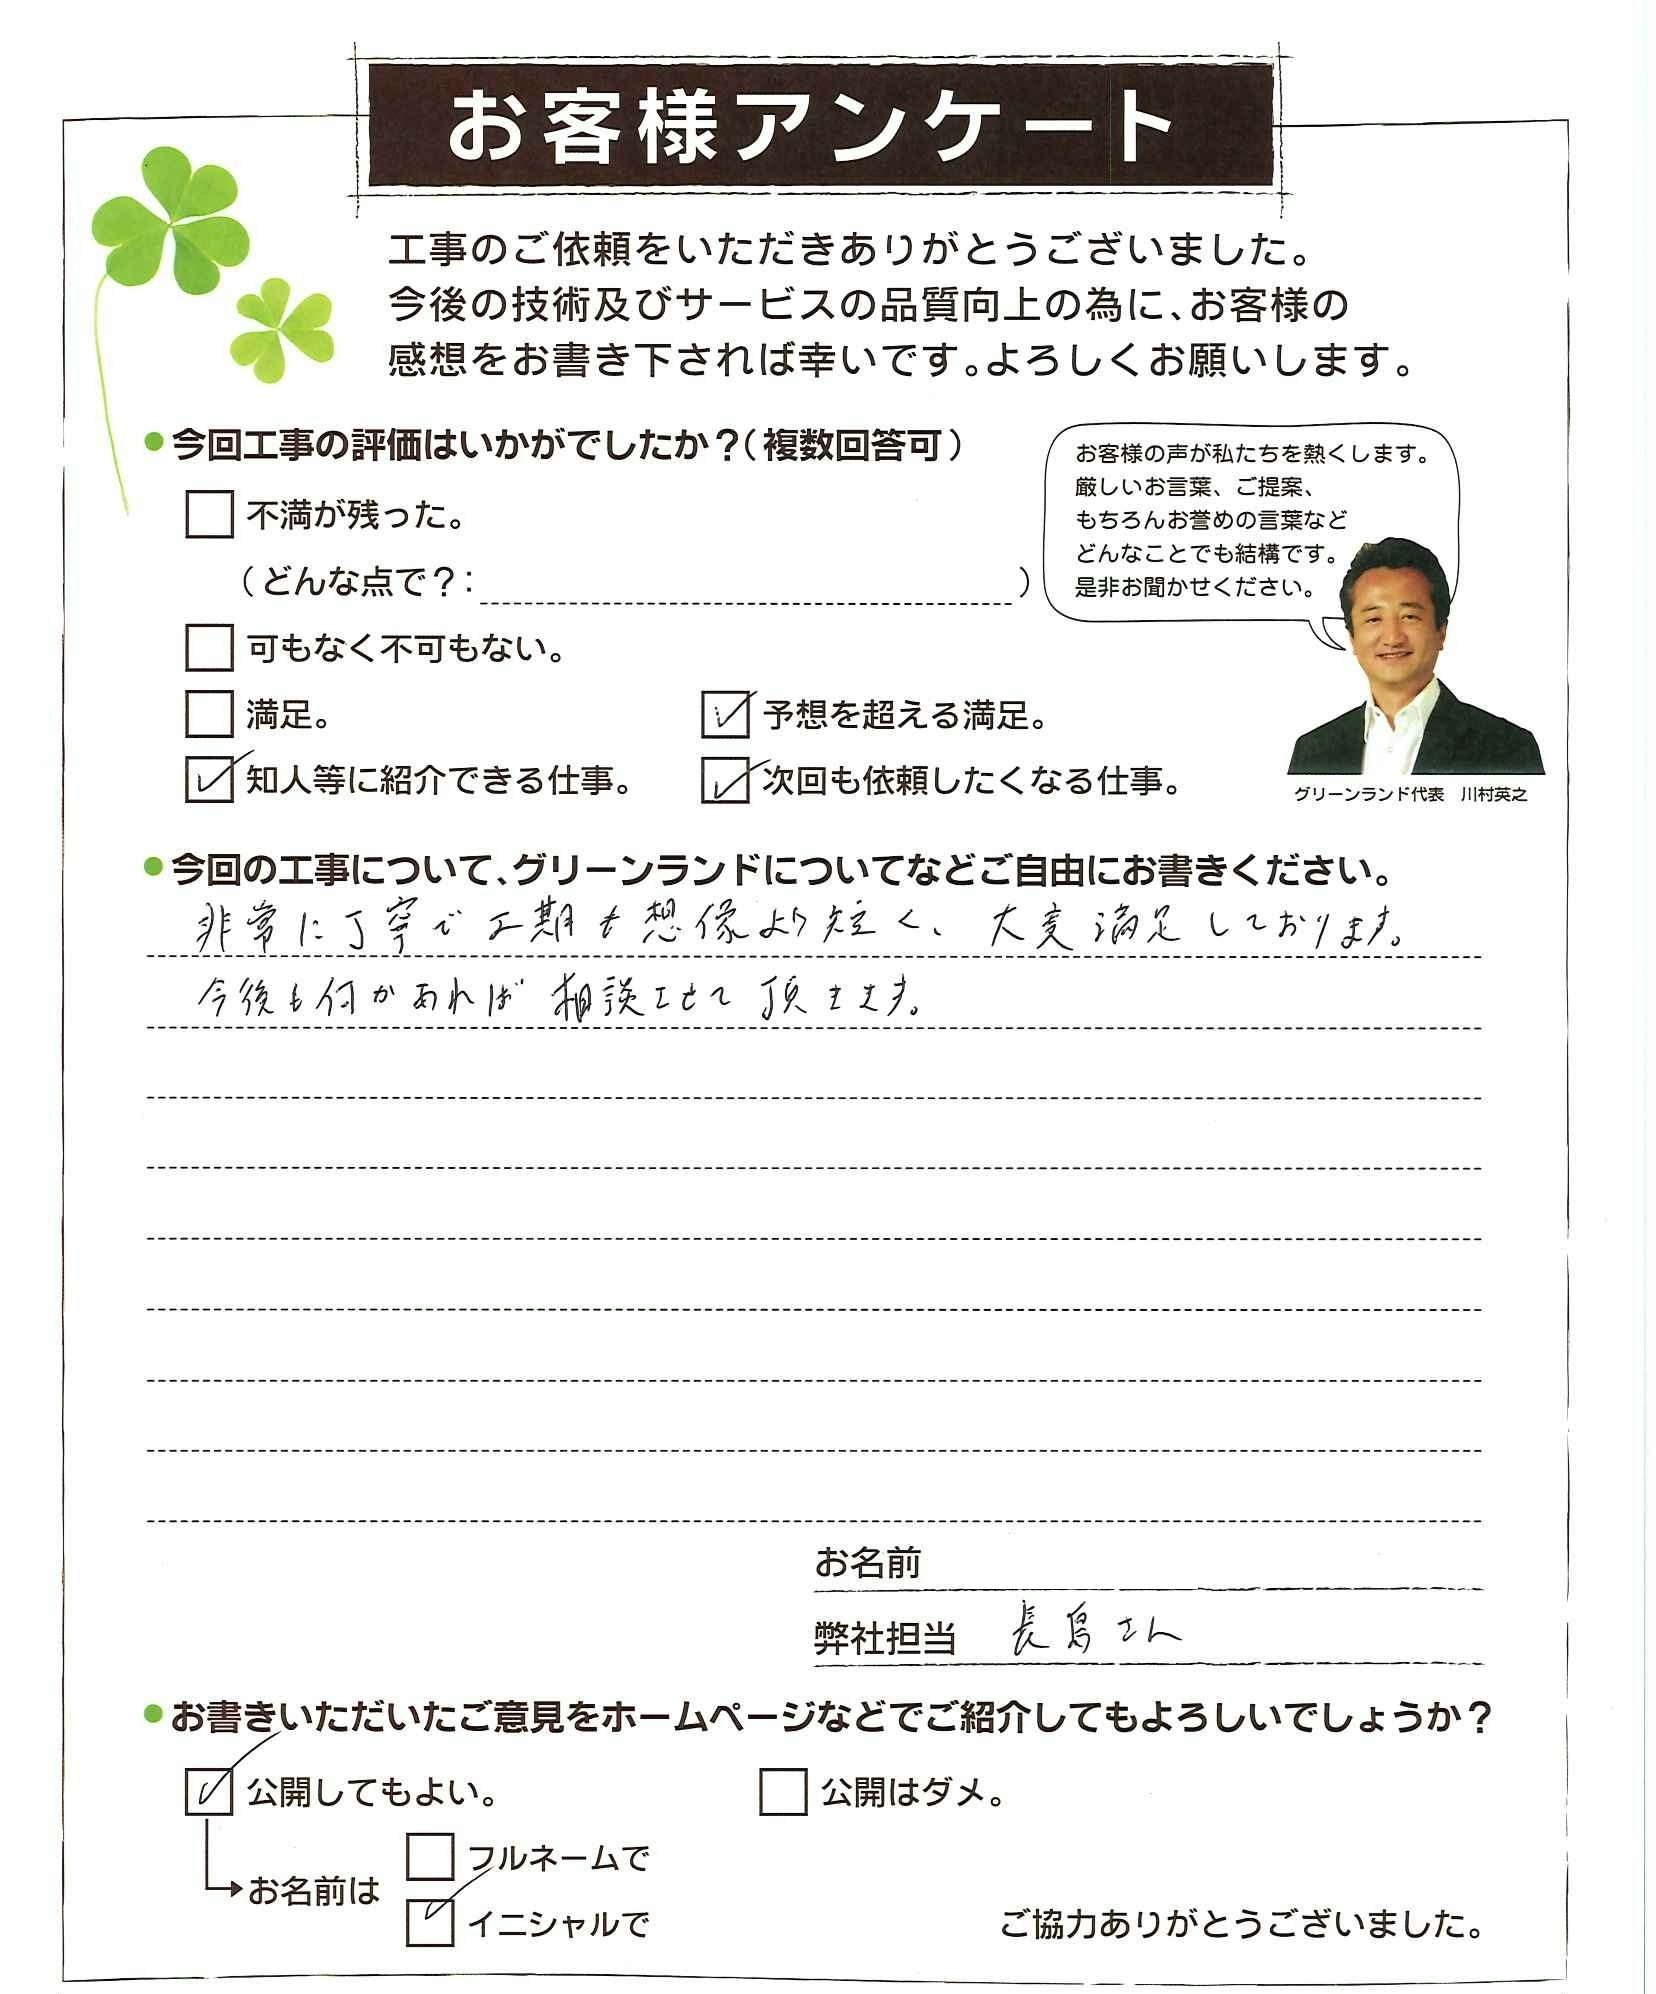 お客様アンケート
工事のご依頼をいただきありがとうございました。
今後の技術及びサービスの品質向上の為に、お客様の
感想をお書き下されば幸いです。よろしくお願いします。
●今回工事の評価はいかがでしたか？（複数回答可）
不満が残った。
（どんな点で？：　）
可もなく不可もない。
満足。
予想を超える満足。
知人等に紹介できる仕事。
次回も依頼したくなる仕事。
お客様の声が私たちを熱くします。
厳しいお言葉、ご提案、
もちろんお誉めの言葉など
どんなことでも結構です。
是非お聞かせください。
グリーンランド代表　川村英之
●今回の工事について、グリーンランドについてなどご自由にお書きください。
非常に丁寧で工期も想像より短く、大変満足しております。
今後も何かあれば相談させて頂きます。
お名前
弊社担当　長島さん
●お書きいただいたご意見をホームページなどでご紹介してもよろしいでしょうか？
公開してもよい。
公開はダメ。
お名前は
フルネームで
イニシャルで
ご協力ありがとうございました。